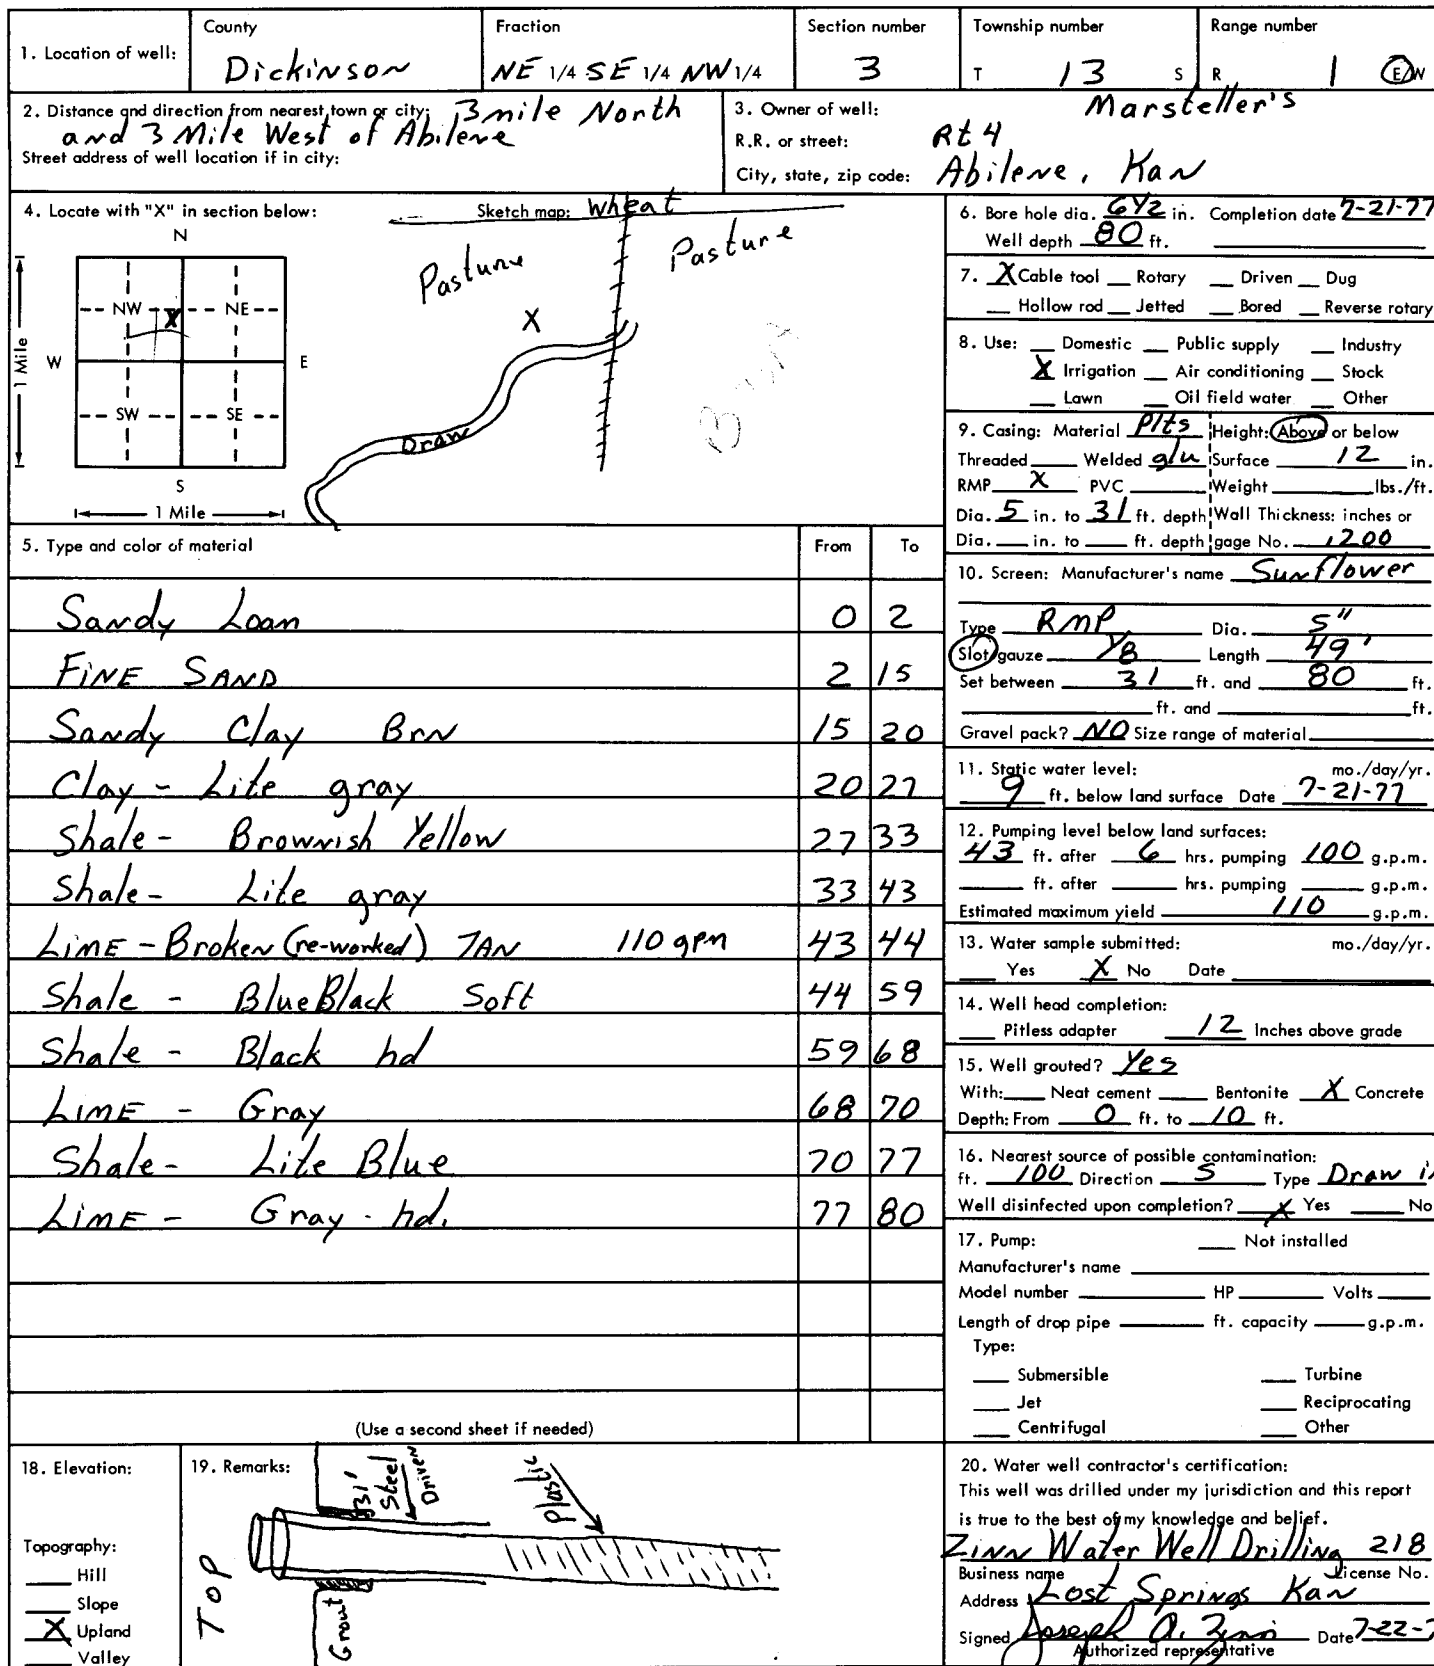 1. Location of well:
County
Dickinson
Fraction
NE 1/4 SE 1/4 NW 1/4
Section number
3
Township number
T 13 S
Range number
R 1 E/W
2. Distance and direction from nearest town or city: 3 mile North
and 3 Mile West of Abilene
Street address of well location if in city:
3. Owner of well: Marsteller's
R.R. or street: Rt 4
City, state, zip code: Abilene, Kan
4. Locate with "X" in section below:
N
NW X NE
W E
SW SE
S
1 Mile
1 Mile
Sketch map: Wheat
Pasture Pasture
X
Draw
5. Type and color of material From To
Sandy Loan 0 2
FINE SAND 2 15
Sandy Clay Brn 15 20
Clay - Lite gray 20 27
Shale - Brownish Yellow 27 33
Shale - Lite gray 33 43
LIME - Broken (re-worked) TAN 110 gpm 43 44
Shale - Blue Black Soft 44 59
Shale - Black hd 59 68
LIME - Gray 68 70
Shale - Lite Blue 70 77
LIME - Gray - hd. 77 80
(Use a second sheet if needed)
6. Bore hole dia. 6 1/2 in. Completion date 7-21-77
Well depth 80 ft.
7. X Cable tool Rotary Driven Dug
Hollow rod Jetted Bored Reverse rotary
8. Use: Domestic Public supply Industry
X Irrigation Air conditioning Stock
Lawn Oil field water Other
9. Casing: Material Plts Height: Above or below
Threaded Welded glu Surface 12 in.
RMP X PVC Weight lbs./ft.
Dia. 5 in. to 31 ft. depth Wall Thickness: inches or
Dia. in. to ft. depth gage No. .200
10. Screen: Manufacturer's name Sunflower
Type RMP Dia. 5"
Slot/gauze 1/8 Length 49'
Set between 31 ft. and 80 ft.
ft. and ft.
Gravel pack? NO Size range of material
11. Static water level: mo./day/yr.
9 ft. below land surface Date 7-21-77
12. Pumping level below land surfaces:
43 ft. after 6 hrs. pumping 100 g.p.m.
ft. after hrs. pumping g.p.m.
Estimated maximum yield 110 g.p.m.
13. Water sample submitted: mo./day/yr.
Yes X No Date
14. Well head completion:
Pitless adapter 12 Inches above grade
15. Well grouted? Yes
With: Neat cement Bentonite X Concrete
Depth: From 0 ft. to 10 ft.
16. Nearest source of possible contamination:
ft. 100 Direction S Type Draw
Well disinfected upon completion? X Yes No
17. Pump: Not installed
Manufacturer's name
Model number HP Volts
Length of drop pipe ft. capacity g.p.m.
Type:
Submersible Turbine
Jet Reciprocating
Centrifugal Other
18. Elevation:
Topography:
Hill
Slope
X Upland
Valley
19. Remarks:
TOP
31'
Steel
Driven
Plastic
Grout
20. Water well contractor's certification:
This well was drilled under my jurisdiction and this report
is true to the best of my knowledge and belief.
Zinn Water Well Drilling 218
Business name License No.
Address Lost Springs Kan
Signed Joseph A. Zinn Date 7-22-7
Authorized representative